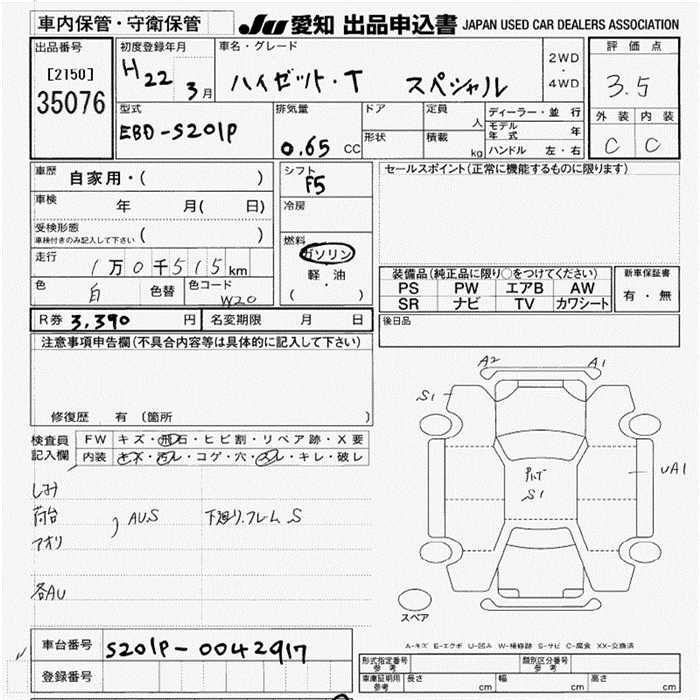 車内保管・守衛保管
JU 愛知 出品申込書 JAPAN USED CAR DEALERS ASSOCIATION
出品番号
[2150]
35076
初度登録年月
H22 3月
車名・グレード
ハイゼット・T スペシャル
2WD
・
4WD
評価点
3.5
外装 内装
C C
型式
EBD-S201P
排気量
0.65 CC
ドア
形状
定員
人
積載
kg
ディーラー・並行
モデル年式 年
ハンドル 左・右
車歴 自家用・( )
車検 年 月( 日)
受検形態
車検付きのみ記入して下さい ( )
走行 1万0千515km
色 白 色替 色コード W20
シフト
F5
冷房
燃料
ガソリン
軽油
( ・ )
セールスポイント(正常に機能するものに限ります)
装備品(純正品に限り○をつけてください)
PS PW エアB AW
SR ナビ TV カワシート
新車保証書
有・無
R券 3,390 円 名変期限 月 日
後日品
注意事項申告欄(不具合内容等は具体的に記入して下さい)
修復歴 有 〔箇所 〕
検査員記入欄
FW キズ・飛石・ヒビ割・リペア跡・X要
内装 キズ・汚レ・コゲ・穴・スレ・キレ・破レ
しみ
荷台
アオリ
) AU.S
下廻り.フレーム S
各AU
A2 A1
S1
UA1
S1
スペア
A-キズ E-エクボ U-凹み W-補修跡 S-サビ C-腐食 XX-交換済
車台番号 S201P-0042917
登録番号
形式指定番号 参考
類別区分番号 参考
車庫証明用 参考 長さ cm 幅 cm 高さ cm